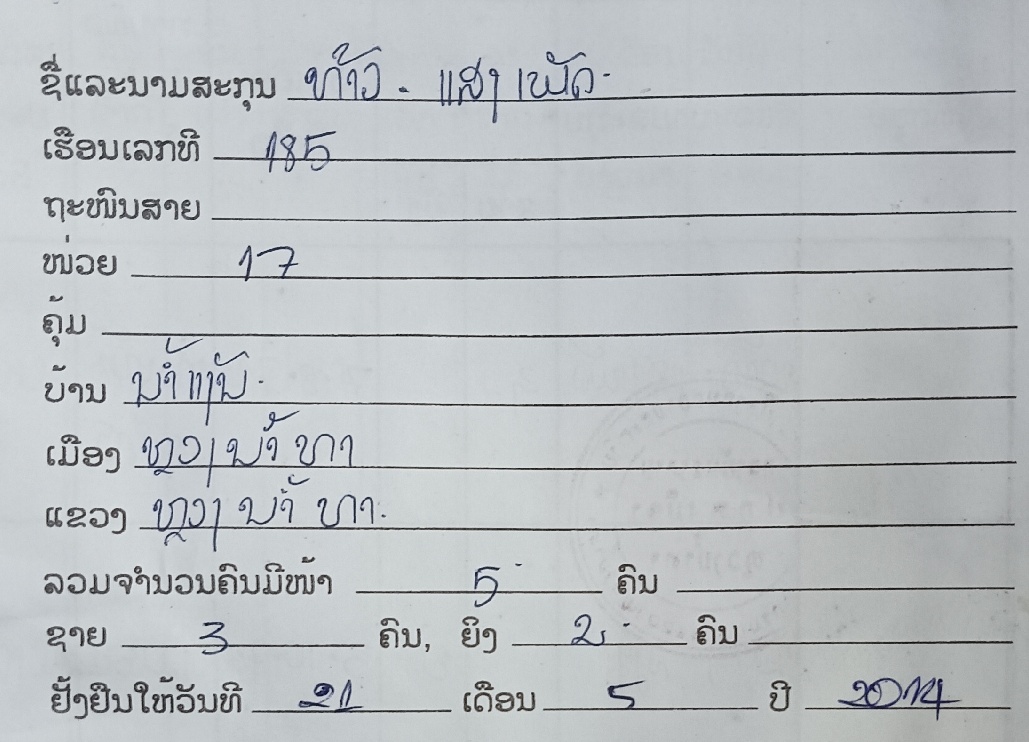 ຊື່ແລະນາມສະກຸນ ທ້າວ - ແສງ
ເຮືອນເລກທີ 185
ຖະໜົນສາຍ
ໜ່ວຍ 17
ຄຸ້ມ
ບ້ານ
ເມືອງ ຫຼວງນໍ້າທາ
ແຂວງ ຫຼວງນໍ້າທາ
ລວມຈໍານວນຄົນມີໜ້າ 5 ຄົນ
ຊາຍ 3 ຄົນ, ຍິງ 2 ຄົນ
ຢັ້ງຢືນໃຫ້ວັນທີ 21 ເດືອນ 5 ປີ 2014